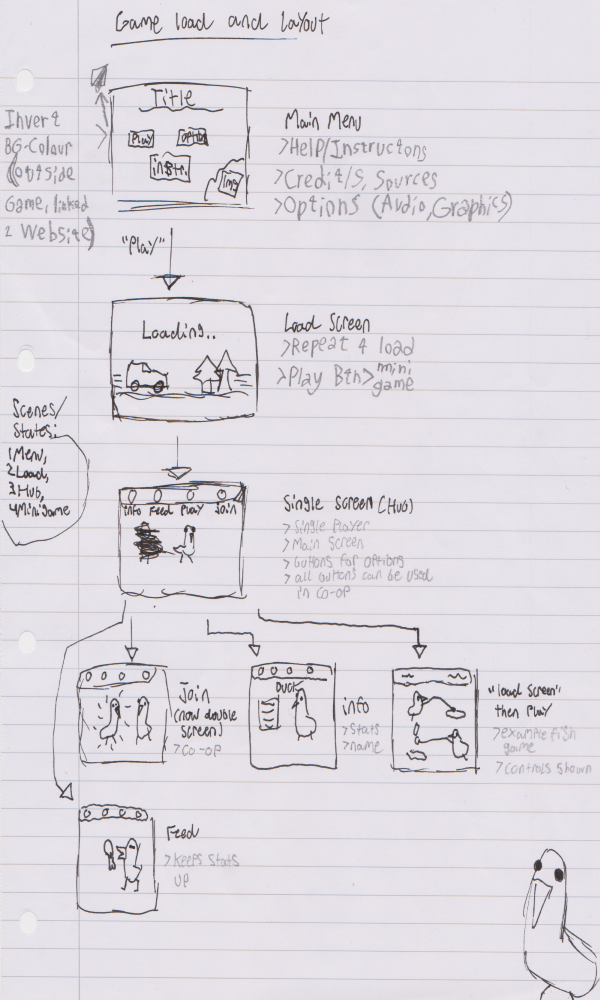 Game load and layout
Title
Play
Options
instr.
Img
Invert
BG-Colour
(outside
Game, linked
2 Website)
Main Menu
>Help/Instructons
>Credit/s, Sources
>Options (Audio, Graphics)
"Play"
Loading..
Load Screen
>Repeat 4 load
>Play Btn> mini
game
Scenes/
States:
1 Menu,
2 Load,
3 Hub,
4 Minigame
info Feed Play Join
Single Screen (Hub)
> Single Player
> Main Screen
> buttons for options
> all buttons can be used
in co-op
Join
(now double
screen)
> Co-op
DUCK
info
>stats
>name
"load screen"
then Play
>example fish
game
> Controls Shown
Feed
> Keeps Stats
up